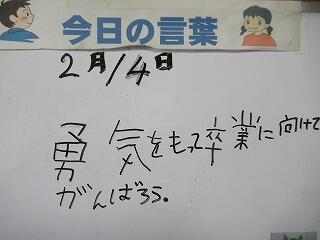 今日の言葉
2月14日
勇気をもって卒業に向けて
がんばろう。